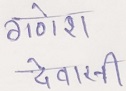 गणेश
देवासी